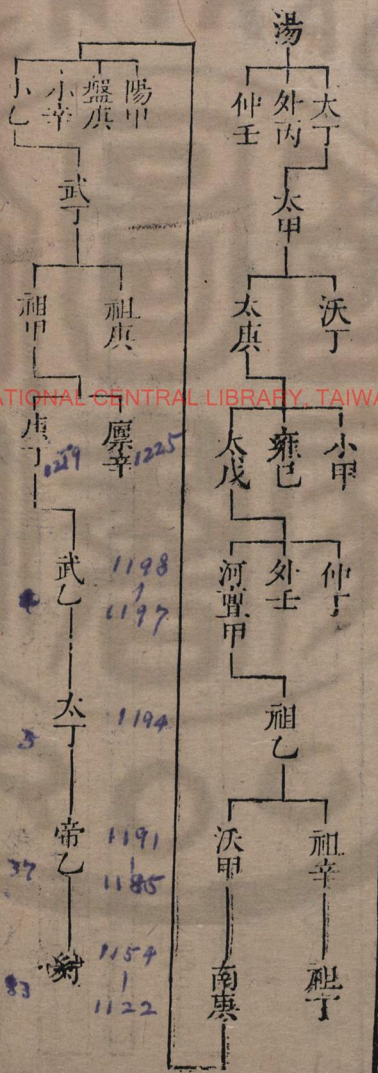 湯
太丁
外丙
仲壬
太甲
沃丁
太庚
小甲
雍己
太戊
仲丁
外壬
河亶甲
祖乙
祖辛
沃甲
祖丁
南庚
陽甲
盤庚
小辛
小乙
武丁
祖庚
祖甲
廩辛 1225
庚丁 1219
武乙 1198
1197
4
太丁 1194
3
帝乙 1191
1185
37
紂 1154
1122
33
NATIONAL CENTRAL LIBRARY, TAIWA